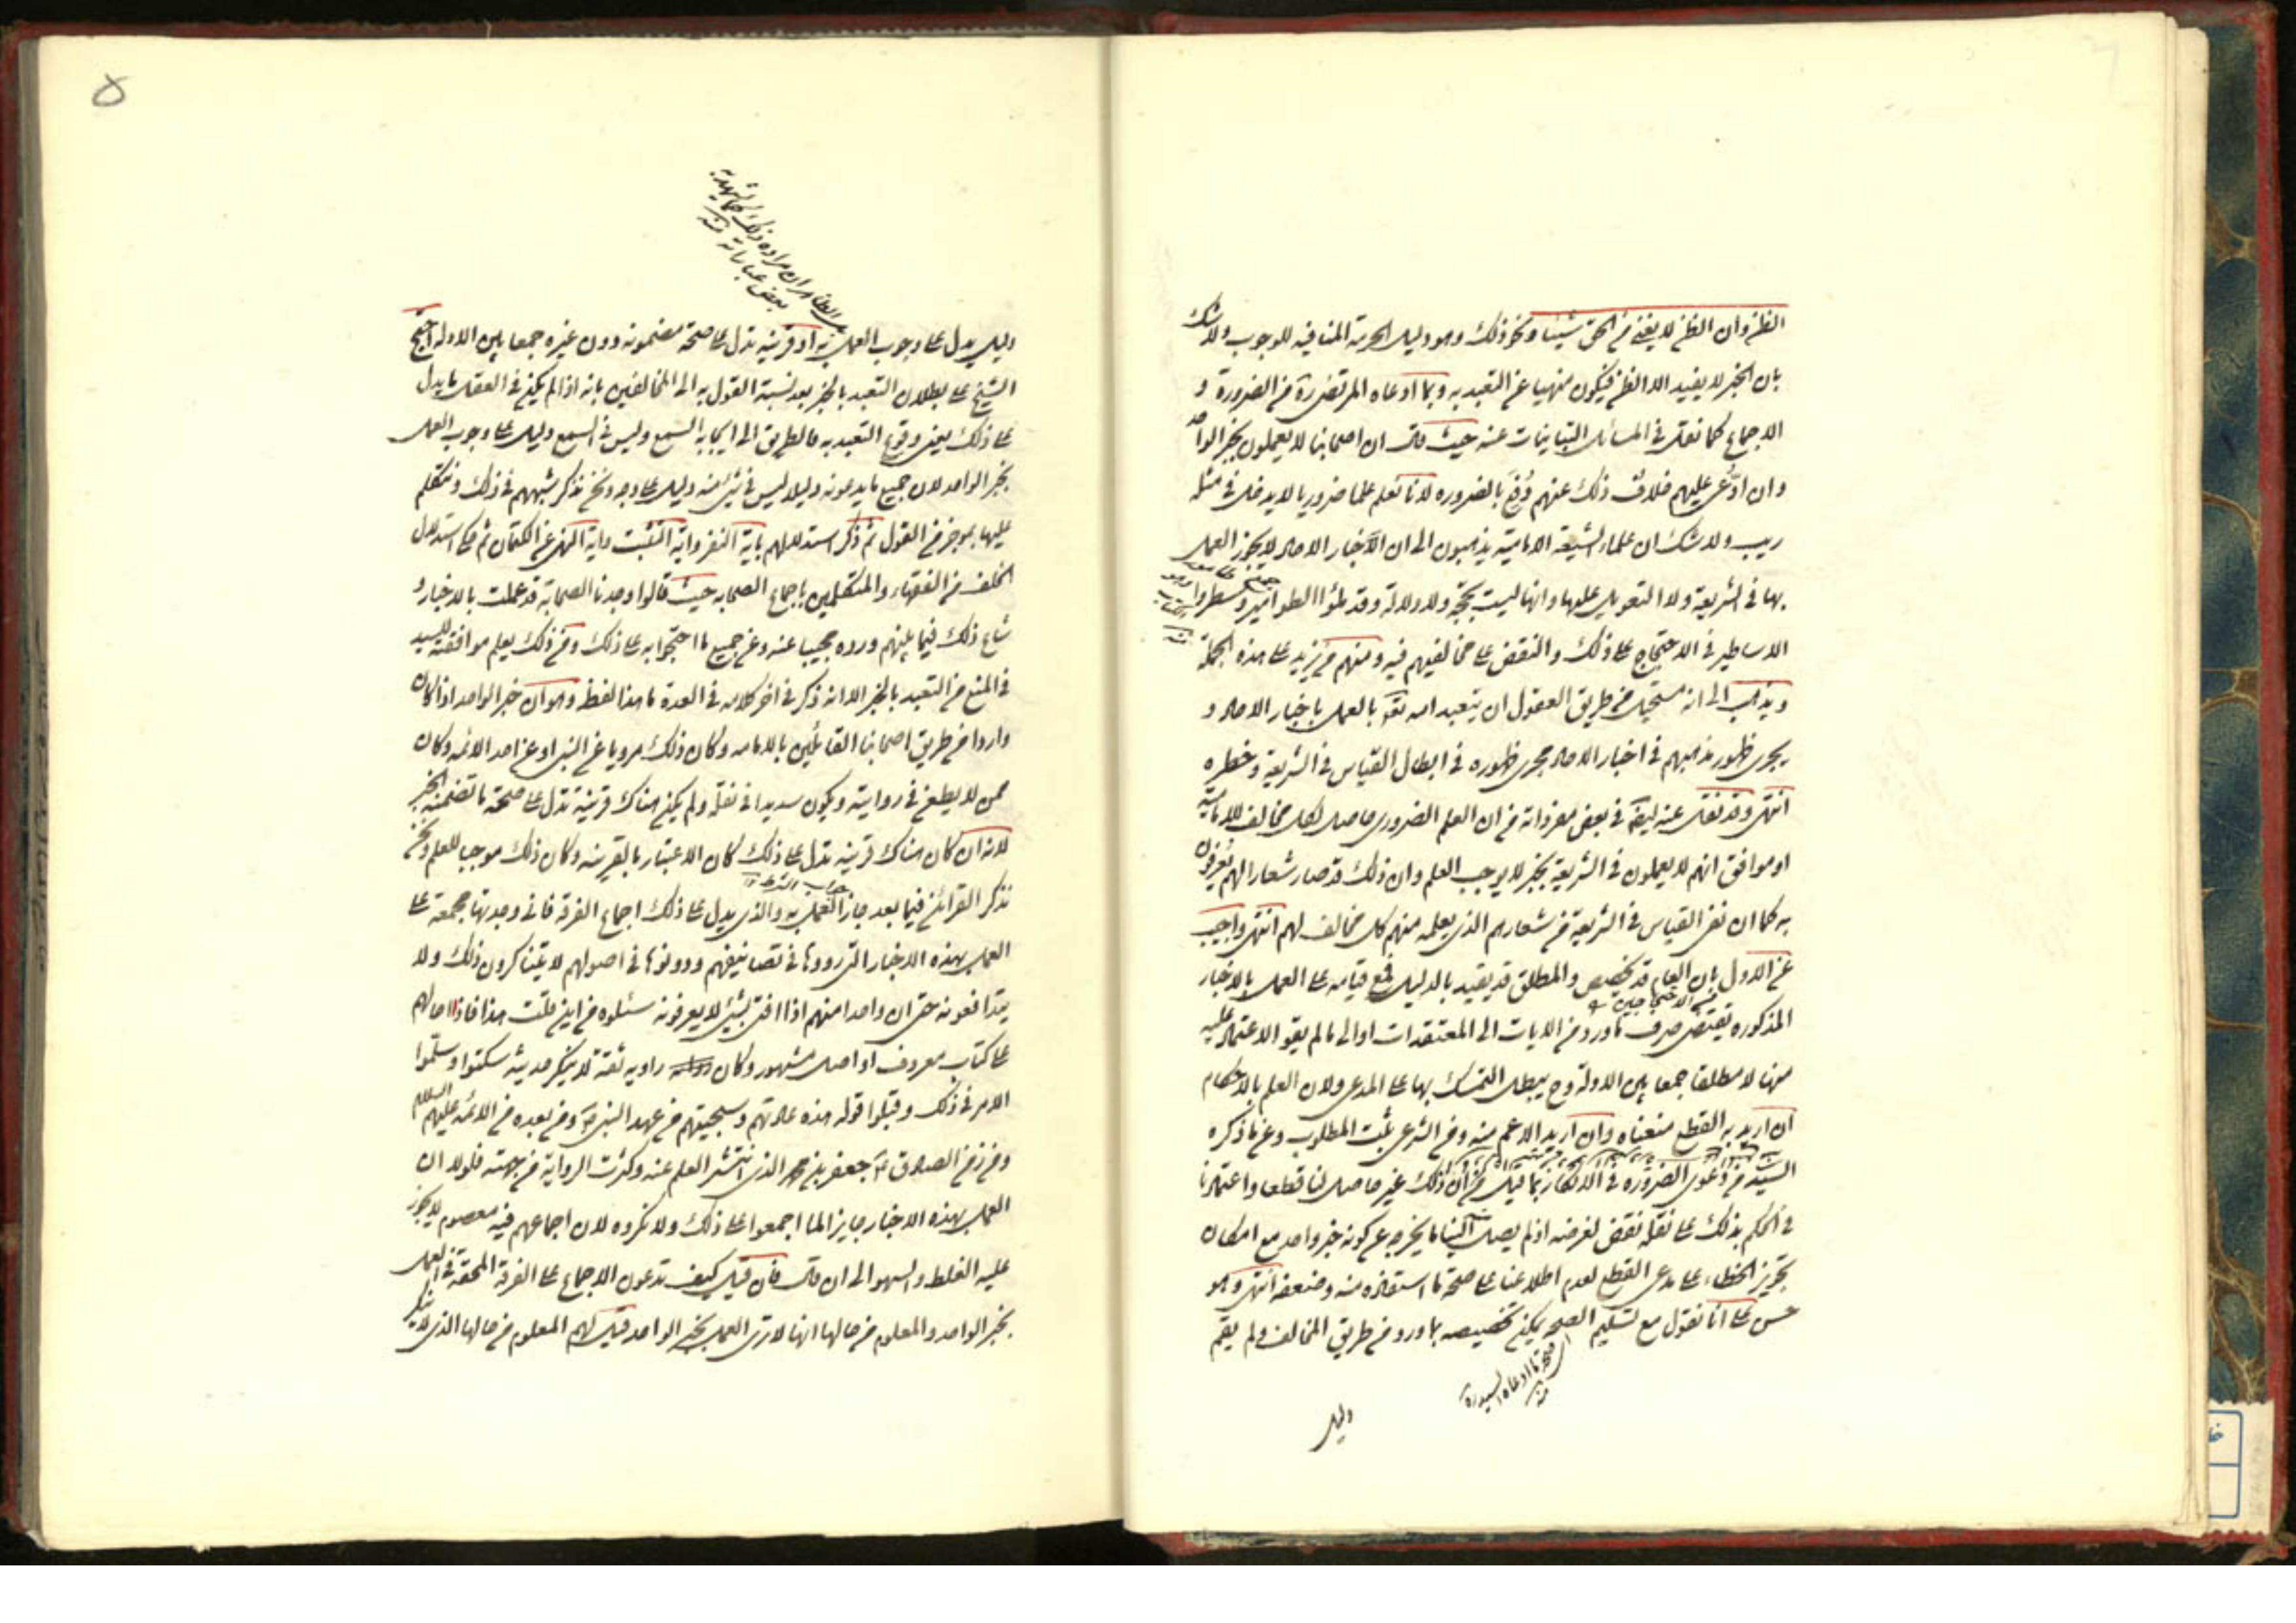 الظن وان الظن لا يغني من الحق شيئا ونحو ذلك وهو دليل الحرمة المنافيه للوجوب ولا شك
بان الخبر لا يفيد الا الظن فيكون منهيا عن التعبد به وبما ادعاه المرتضى ره من الضرورة و
الاجماع كما نقل في المسائل التباينات عنه حيث قال ان اصحابنا لا يعملون بخبر الواحد
وان ادعى عليهم خلاف ذلك عنهم دفع بالضروره لانا نعلم علما ضروريا لا يدخل في مثله
ريب ولا شك ان علماء الشيعة الامامية يذهبون الى ان الاخبار الاحاد لا يجوز العمل
بها في الشريعة ولا التعويل عليها وانها ليست بحجة ولا دلالة وقد ملؤا الطوامير وسطروا
الاساطير في الاحتجاج على ذلك والنقض على مخالفيهم فيه ومنهم من يزيد على هذه الجملة
ويذهب الى انه مستحيل من طريق العقول ان يتعبد الله تعالى بالعمل باخبار الاحاد و
يجرى ظهور مذهبهم في اخبار الاحاد مجرى ظهوره في ابطال القياس في الشريعة وخطره
انتهى وقد نقل عنه ايضا في بعض مفرداته من ان العلم الضروري حاصل لكل مخالف للامامية
او موافق انهم لا يعملون في الشريعة بخبر لا يوجب العلم وان ذلك قد صار شعارا لهم يعرفون
به كما ان نفى القياس في الشريعة من شعارهم الذي يعلمه منهم كل مخالف لهم انتهى واجيب
عن الاول بان العام قد يخصص والمطلق قد يقيد بالدليل فمع قيامه على العمل بالاخبار
المذكوره يقتضى صرف ما ورد من الايات الى المعتقدات او الى ما لم يقو الاعتماد عليه
منها لا مطلقا جمعا بين الادلة وح يبطل التمسك بها على المدعى ولان العلم بالاحكام
ان اريد به القطع منعناه وان اريد الاعم منه ومن الشرعي ثبت المطلوب وعن ما ذكره
السيد من دعوى الضروره في الانكار بما قيل من ان ذلك غير حاصل لنا قطعا واعتمادنا
في الحكم بذلك على نقله نقض لغرضه اذ لم يصل الينا ما يخرجه عن كونه خبر واحد مع امكان
تجويز الخطاء على مدعى القطع لعدم اطلاعنا على صحة ما استفاده منه وضعفه انتهى وهو
حسن على انا نقول مع تسليم الصحه يمكن تخصيصه بما ورد من طريق المخالف ولم يقم
اى صحة ما ادعاه السيد ره
منه
دليل
۵
الظاهر ان مراده ذلك كما يشهد به
بعض عباراته منه
دليل يدل على وجوب العمل به او قرينه تدل على صحة مضمونه دون غيره جمعا بين الادله احتج
الشيخ على بطلان التعبد بالخبر بعد نسبة القول به الى المخالفين بانه اذا لم يكن في العقل ما يدل
على ذلك يعنى وقوع التعبد به فالطريق الى ايجابه السمع وليس في السمع دليل على وجوب العمل
بخبر الواحد لان جميع ما يدعونه دليلا ليس في شئ منه دليل على وجه ونحن نذكر شبههم في ذلك ونتكلم
عليها بموجز من القول ثم ذكر استدلالهم باية النفر واية التثبت واية النهى عن الكتمان ثم حكى استدلال
الخلف من الفقهاء والمتكلمين باجماع الصحابه حيث قالوا وجدنا الصحابة قد عملت بالاخبار و
شاع ذلك فيما بينهم ورده مجيبا عنه وعن جميع ما احتجوا به على ذلك ومن ذلك يعلم موافقته للسيد
في المنع من التعبد بالخبر الا انه ذكر في اخر كلامه في العدة ما هذا لفظه وهو ان خبر الواحد اذا كان
واردا من طريق اصحابنا القائلين بالامامه وكان ذلك مرويا عن النبي او عن احد الائمه وكان
ممن لا يطعن في روايته ويكون سديدا في نقله ولم يكن هناك قرينة تدل على صحة ما تضمنه الخبر
لانه ان كان هناك قرينه تدل على ذلك كان الاعتبار بالقرينه وكان ذلك موجب للعلم ونحن
نذكر القرائن فيما بعد جاز العمل به والذي يدل على ذلك اجماع الفرقه فانى وجدتها مجمعة على
العمل بهذه الاخبار التي رووها في تصانيفهم ودونوها في اصولهم لا يتناكرون ذلك ولا
يتدافعونه حتى ان واحدا منهم اذا افتى بشئ لا يعرفونه سئلوه من اين قلت هذا فاذا احالهم
على كتاب معروف او اصل مشهور وكان راويه ثقة لا ينكر حديثه سكتوا وسلموا
الامر في ذلك وقبلوا قوله هذه عادتهم وسجيتهم من عهد النبي ص ومن بعده من الائمه عليهم السلام
ومن زمن الصادق ع جعفر بن محمد الذي انتشر العلم عنه وكثرت الرواية من جهته فلولا ان
العمل بهذه الاخبار جايز الما اجمعوا على ذلك ولا نكروه لان اجماعهم فيه معصوم لا يجوز
عليه الغلط والسهو الى ان قال فان قيل كيف تدعون الاجماع على الفرقة المحقه في العمل
بخبر الواحد والمعلوم من حالها انها لا ترى العمل بخبر الواحد قيل لهم المعلوم من حالها الذي لا ينكر